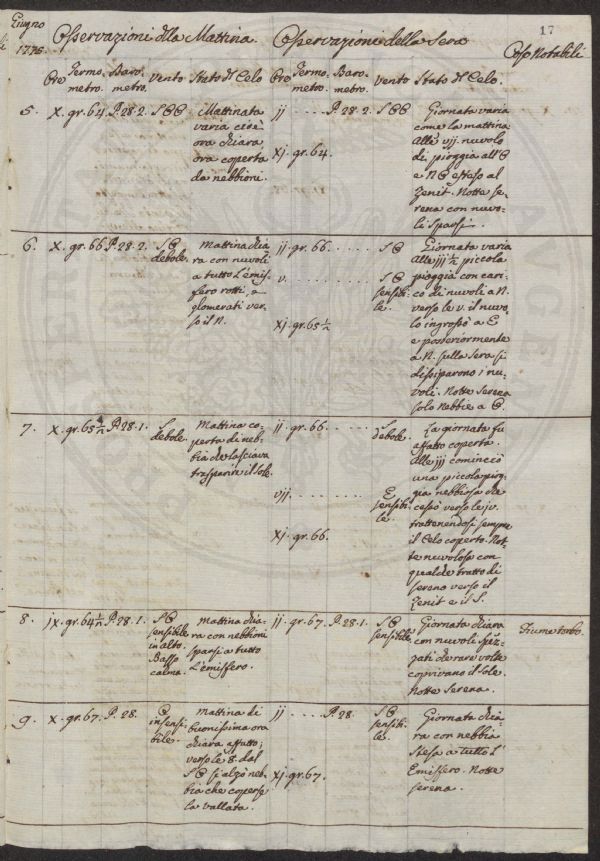 17
Giugno
1775.
Osservazioni dlla Mattina
Osservazione della Sera
Cose Notabili
Ore Termo- Baro- vento Stato dl Celo
metro. metro.
Ore Termo- Baro- vento Stato dl Celo.
metro. metro.
5. X. gr. 64. P. 28. 2. S
Mattinata
varia cioè
ora chiara,
ora coperta
da nebbioni.
jj ..... P. 28. 2. S
Xj. gr. 64.
Giornata varia
come la mattina
Alle vjj. nuvolo
di pioggia all'
e N esteso al
Zenit. Notte se-
rena con nuvo-
li sparsi.
6. X. gr. 66. P. 28. 2. S
debole.
Mattina chia-
ra con nuvoli
a tutto l'emis-
fero rotti, e
glomerati ver-
so il N.
jj. gr. 66. ......
v. ........
sensibi-
le.
Xj. gr. 65 ½
Giornata varia
alle jjj ½ piccola
pioggia con cari-
co di nuvoli a N.
verso le v. il nuvo-
lo ingrossò a E
e posteriormente
a N. sulla sera si
dissiparono i nu-
voli. Notte Serena
solo Nebbie a
7. X. gr. 65 ½ P. 28. 1. S
debole.
Mattina co-
perta di neb-
bia che lasciava
trasparire il sole.
jj. gr. 66. ...... S
debole.
vjj. ........ E
sensibi-
le.
Xj. gr. 66.
La giornata fu
affatto coperta.
Alle jjj cominciò
una piccola piog-
gia nebbiosa che
cessò verso le jv.
trattenendosi sempre
il Celo coperto. Not-
te nuvolosa con
qualche tratto di
sereno verso il
Zenit e il S.
8. jX. gr. 64 ½ P. 28. 1. S
sensibile
in alto.
Basso
calma.
Mattina chia-
ra con nebbioni
sparsi a tutto
l'emisfero.
jj. gr. 67. P. 28. 1. S
sensibile
Giornata chiara
con nuvoli spez-
zati che rare volte
coprivano il sole.
Notte Serena.
Fiume torbo.
9. X. gr. 67. P. 28.
insensi-
bile.
Mattina di
buonissima ora
chiara affatto;
verso le 8. dal
S si alzò neb-
bia che coperse
la vallata.
jj ..... P. 28. S
sensibi-
le.
Xj. gr. 67.
Giornata chia-
ra con nebbia
stesa a tutto l'
Emissero. Notte
serena.